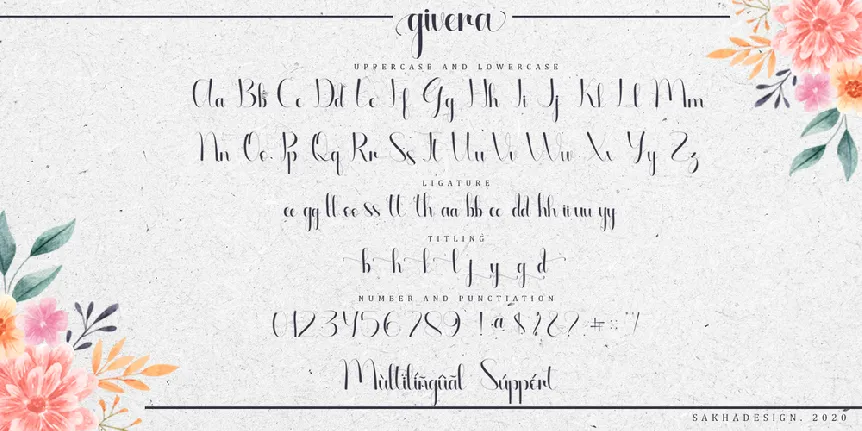 givera
UPPERCASE AND LOWERCASE
Aa Bb Cc Dd Ee Ff Gg Hh Ii Jj Kk Ll Mm
Nn Oo Pp Qq Rr Ss Tt Uu Vv Ww Xx Yy Zz
LIGATURE
cc gg ll oo ss tt th aa bb ee dd hh ii uu yy
TITLING
b h k l j y g d
NUMBER AND PUNCTIATION
0123456789!
Mùltilíñgûãl Súppórt
SAKHADESIGN, 2020